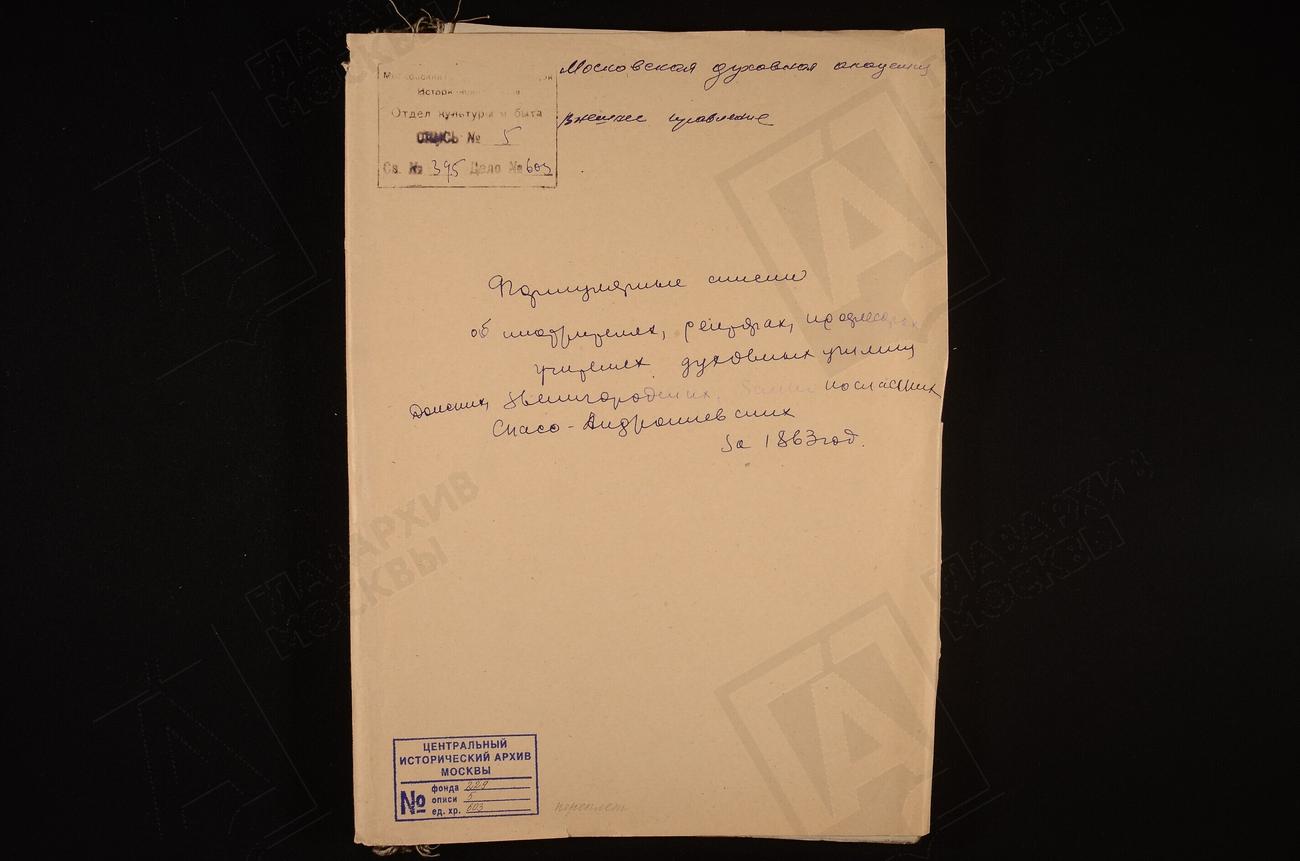 Московская духовная академия
внешнее правление
Отдел культуры и быта
ОПИСЬ № 5
Св. № 395 Дело № 603
Формулярные списки
об инспекторах, ректорах, профессорах
учителях духовных училищ
Донских, Звенигородских,
Спасо-Андрониевских
За 1863 год.
ЦЕНТРАЛЬНЫЙ
ИСТОРИЧЕСКИЙ АРХИВ
МОСКВЫ
№
фонда 229
описи 5
ед. хр. 603
переплет
ГЛАВАРХИВ
МОСКВЫ